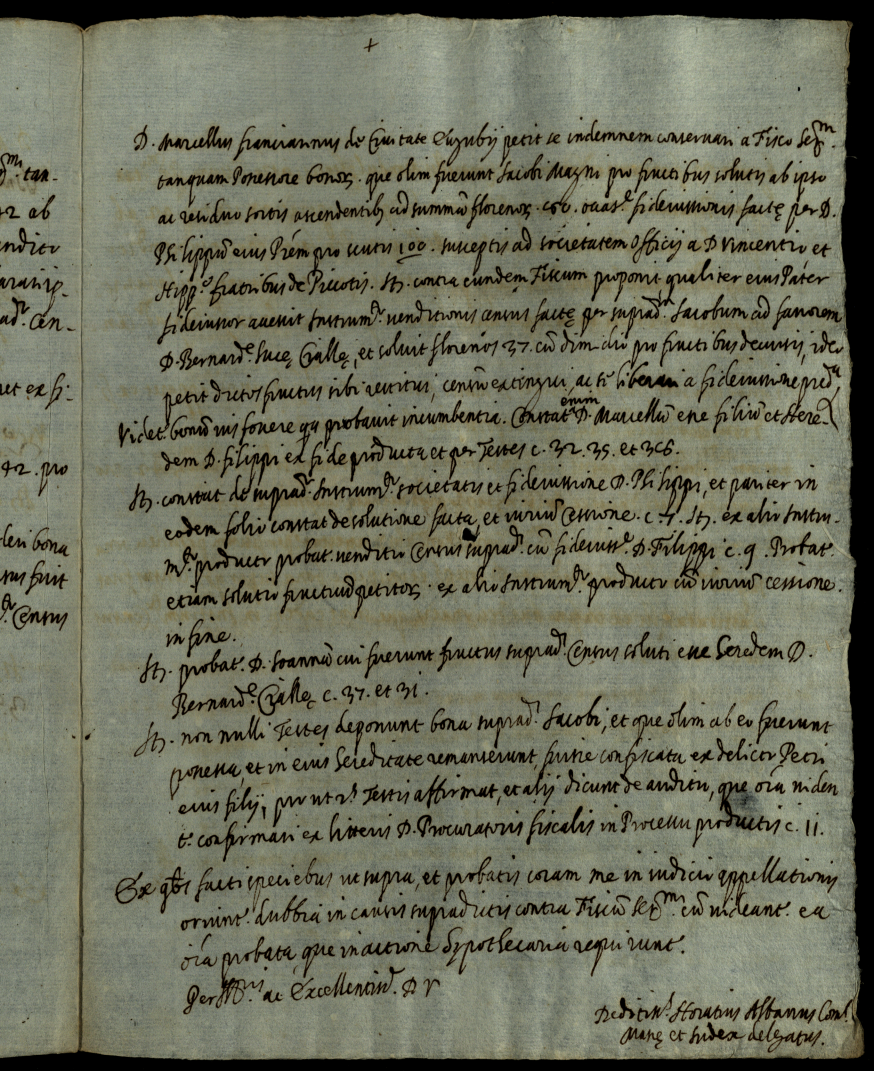 +
D. Marcellus franciarinus de Civitate Eugubij petit se indemnem conservari a Fisco Ser.mo
tanquam Possessore bonor. que olim fuerunt Jacobi Magni pro fructibus solutis ab ipso
ac residuo sortis ascendentib. ad summā florenor. occas.e fideiussionis factę per D.
Philippū eius Pr̄em pro scutis 100. susceptis ad societatem Officij a D Vincentio et
Hipp.o fratribus de Piccotis. It. contra eundem Fiscum proponit qualiter eius Pater
fideiussor accessit Instrum.to venditionis census factę per suprad.m Jacobum ad favorem
D. Bernard.i Lucę Ciallę, et solvit florenos 37. cū dimidio pro fructibus decursis, ideo
petit dictos fructus sibi restitui, censū extingui, ac se liberari a fideiussione pred.a
Videt. bonū ius fovere qa probavit incumbentia. Constat enim D. Marcellū esse filiū et Here-
dem D. filippi ex fide producta et per Testes c. 32. 35. et 36.
It. constat de suprad.o Instrum.to societatis et fideiussione D. Philippi, et pariter in
eodem folio constat de solutione facta, et iuriū Cessione. c. 7. It. ex alio Instru-
m.to producto probat. venditio Census suprad. cū fideiuss.e D. Filippi c. 9. Probat.
etiam solutio fructuū petitor. ex alio Instrum.to producto cū iuriū cessione.
in fine.
It. probat. D. Joannē cui fuerunt fructus suprad.i Census soluti esse Heredem D.
Bernard.i Ciallę c. 37. et 31.
It. non nulli Testes deponunt bona suprad.i Jacobi, et que olim ab eo fuerunt
possessa, et in eius Hereditate remanserunt fuisse confiscata ex delicto Petri
eius filij, prout 2.s Testis affirmat, et alij dicunt de auditu, que oīa viden
t.r confirmari ex litteris D. Procuratoris fiscalis in Processu productis c. 11.
Ex qbus facti speciebus ut supra, et probatis coram me in iudicio appellationis
oriunt. dubbia in causis supradictis contra Fiscū Ser.mum cū videant. ea
oīa probata, que in actione Hypothecaria requirunt.
Per Ill.ris ac Excellentiss.e D V
Deditiss.s Horatius Albanus Com.s
Ma 	et Iudex delegatus.